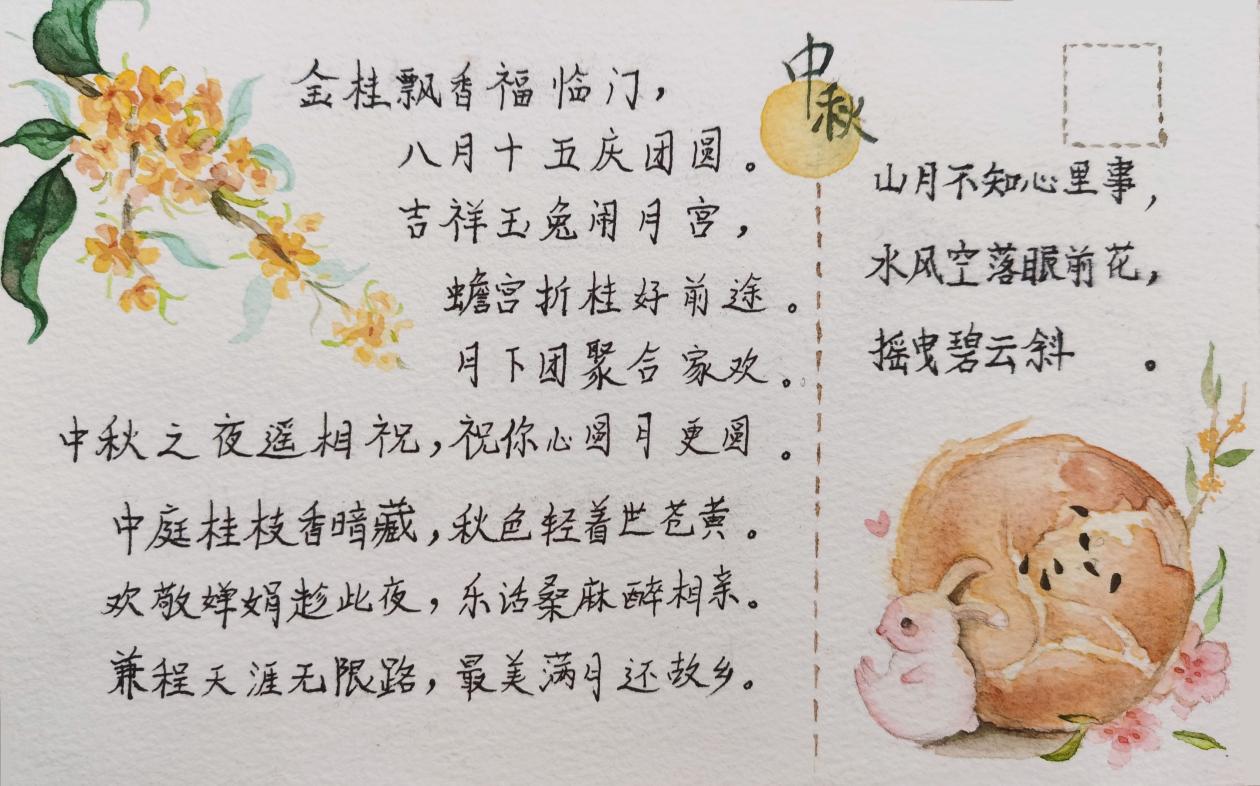 金桂飘香福临门，
八月十五庆团圆。
吉祥玉兔闹月宫，
蟾宫折桂好前途。
月下团聚合家欢。
中秋之夜遥相祝，祝你心圆月更圆。
中庭桂枝香暗藏，秋色轻着世苍黄。
欢敬婵娟趁此夜，乐话桑麻醉相亲。
兼程天涯无限路，最美满月还故乡。
中秋
山月不知心里事，
水风空落眼前花，
摇曳碧云斜。